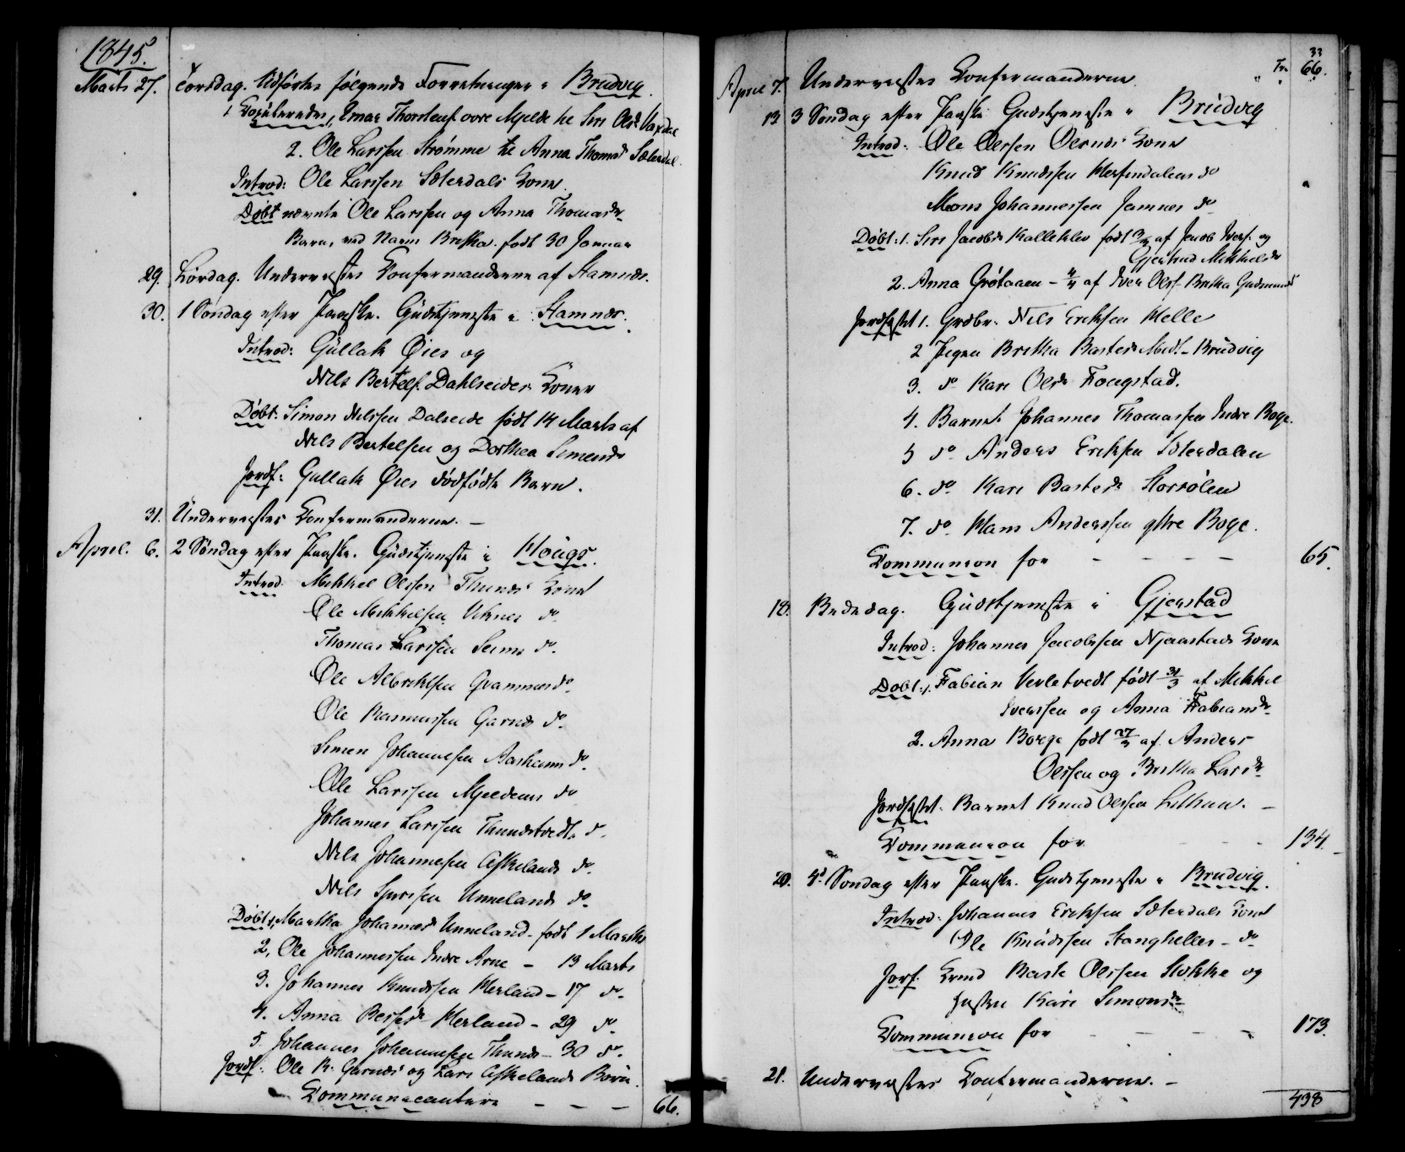 1845.
Marts 27. Torsdag. Udførtes følgende Forretninger i Brudvig
1, Copulerede, Omar Thorstens. øvre Mjelde til Siri Olsd. Vaxdal
2. Ole Larssen Strømme til Anna Thomasd. Sæterdal
Introd: Ole Larssen Sæterdals Kone
Døbt nævnte Ole Larssen og Anna Thomasdr
Barn, ved Navn Britha. født 30 Januar
29. Lørdag. Underviistes Confirmanderne af Stamnæs.
30. 1 Søndag efter Paaske. Gudstjeneste i Stamnæs.
Introd: Gullak Øies og
Nils Bertels. Dahlseides Koner
Døbt: Simon Nilssen Dalseide født 14 Marts af
Nils Bertelsen og Dorthea Simensdr
Jordf: Gullak Øies dødfødte Barn.
31. Underviistes Confirmanderne. –
April. 6. 2 Søndag efter Paaske. Gudstjeneste i Hougs.
Introd. Mikkel Olssen Thunes Kone
Ole Mikkelsen Viknes do.
Thomas Larssen Seims do.
Ole Albriktsen Gvammes do.
Ole Rasmussen Garnes do.
Simen Johannesen Aasheims do.
Ole Larssen Mjeldems do
Johannes Larssen Thunestvedts do.
Nils Johannesen Askelands do.
Nils Sjursen Unnelands do.
Døbt 1, Martha Johannesd. Unneland – født 1 Marts
2, Ole Johannessen Indre Arne – 13 Marts
3. Johannes Knudssen Herland – 17 do.
4. Anna Bersesd. Herland – 29 do.
5. Johannes Johannessen Thunes – 30 do.
Jordf: Ole R. Garnes og Lars Askelands Børn.
Communicantere – – – 66.
33
Tr. 66.
April 7. Underviistes Confirmanderne
13 3 Søndag efter Paaske Gudstjeneste i Brudvig
Introd: Ole Olssen Olsnes Kone
Knud Knudssen Hesjedalens do
Mons Johannessen Jamnes do
Døbt: 1. Siri Jacobsd. Kalleklev født af Jacob Ivers. og
Gjertrud Mikkelsdr
2. Anna Grøtaaen – af Iver Ols. Britha Gudmunds
Jordfæstet 1. Gaardbr. Nils Eriksen Helle
2 Pigen Britha Baste Med. – Brudvig
3. do Kari Olsdr Fougstad.
4. Barnet Johannes Thomassen Indre Boge.
5 do Anders Eriksen Sæterdalen
6. do. Kari Bastesdr Storsølen
7. do Hans Anderssen ystre Boge.
Communion for – – – – 65.
18. Bededag. Gudstjeneste i Gjerstad
Introd: Johannes Jacobssen Njaastads Kone
Døbt: 1. Fabian Verletvedt født 31/3 af Mikkel
Iverssen og Anna Fabiansdr
2. Anna Borge født 27/3 af Anders
Olssen og Britha Larsdr
Jordfæstet. Barnet Knud Olssen Lithun. –
Communion for 134
20. 4de Søndag efter Paaske. Gudstjeneste i Brudvig.
Introd: Johannes Eriksen Sæterdals Kone
Ole Knudssen Stanghelles – do
Jorf. Baste Olssen Stokke og
Kari Simonsdr
Communion for – – – 173.
21. Underviistes Confirmanderne. –
438